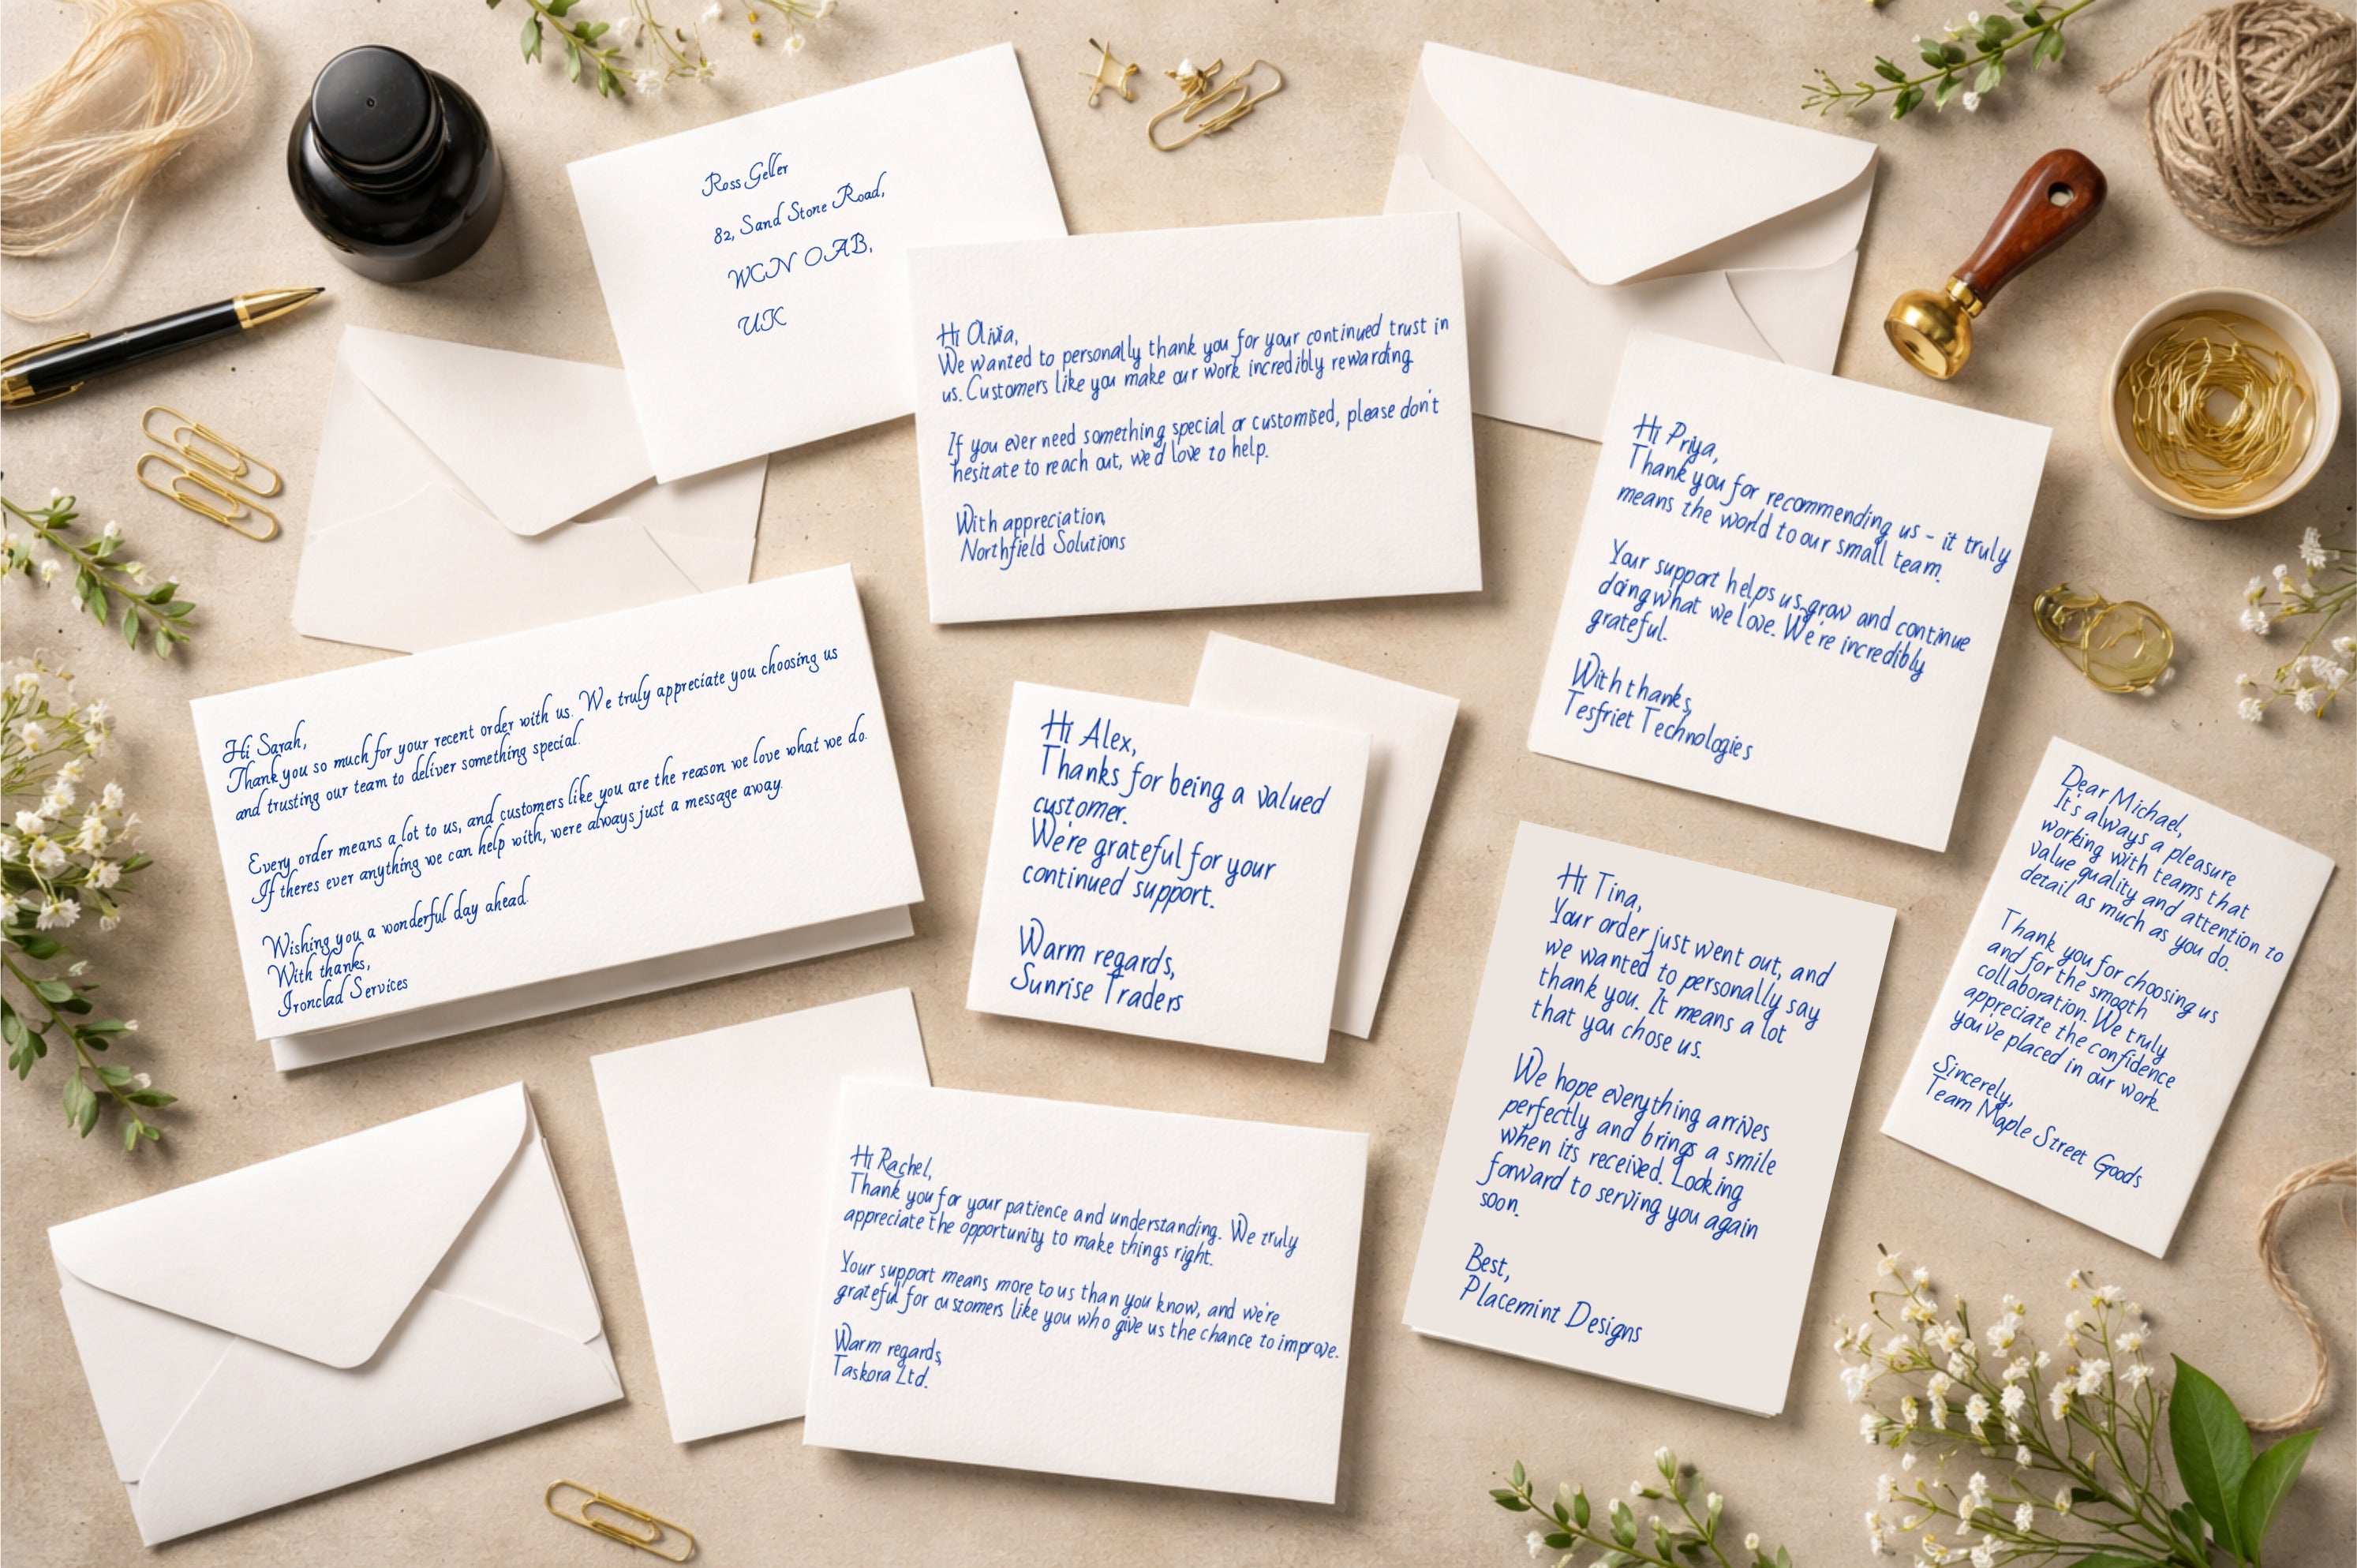 Ross Geller
82, Sand Stone Road,
WCN OAB,
UK
Hi Olivia,
We wanted to personally thank you for your continued trust in
us. Customers like you make our work incredibly rewarding
If you ever need something special or customised, please don't
hesitate to reach out, we'd love to help.
With appreciation,
Northfield Solutions
Hi Priya,
Thank you for recommending us - it truly
means the world to our small team.
Your support helps us grow and continue
doing what we love. We're incredibly
grateful.
With thanks,
Tesfriet Technologies
Hi Sarah,
Thank you so much for your recent order with us. We truly appreciate you choosing us
and trusting our team to deliver something special.
Every order means a lot to us, and customers like you are the reason we love what we do.
If theres ever anything we can help with, were always just a message away.
Wishing you a wonderful day ahead.
With thanks,
Ironclad Services
Hi Alex,
Thanks for being a valued
customer.
We're grateful for your
continued support.
Warm regards,
Sunrise Traders
Dear Michael,
It's always a pleasure
working with teams that
value quality and attention to
detail as much as you do.
Thank you for choosing us
and for the smooth
collaboration. We truly
appreciate the confidence
you've placed in our work.
Sincerely,
Team Maple Street Goods
Hi Tina,
Your order just went out, and
we wanted to personally say
thank you. It means a lot
that you chose us.
We hope everything arrives
perfectly and brings a smile
when its received. Looking
forward to serving you again
soon.
Best,
Placemint Designs
Hi Rachel,
Thank you for your patience and understanding. We truly
appreciate the opportunity to make things right.
Your support means more to us than you know, and we're
grateful for customers like you who give us the chance to improve.
Warm regards,
Taskora Ltd.